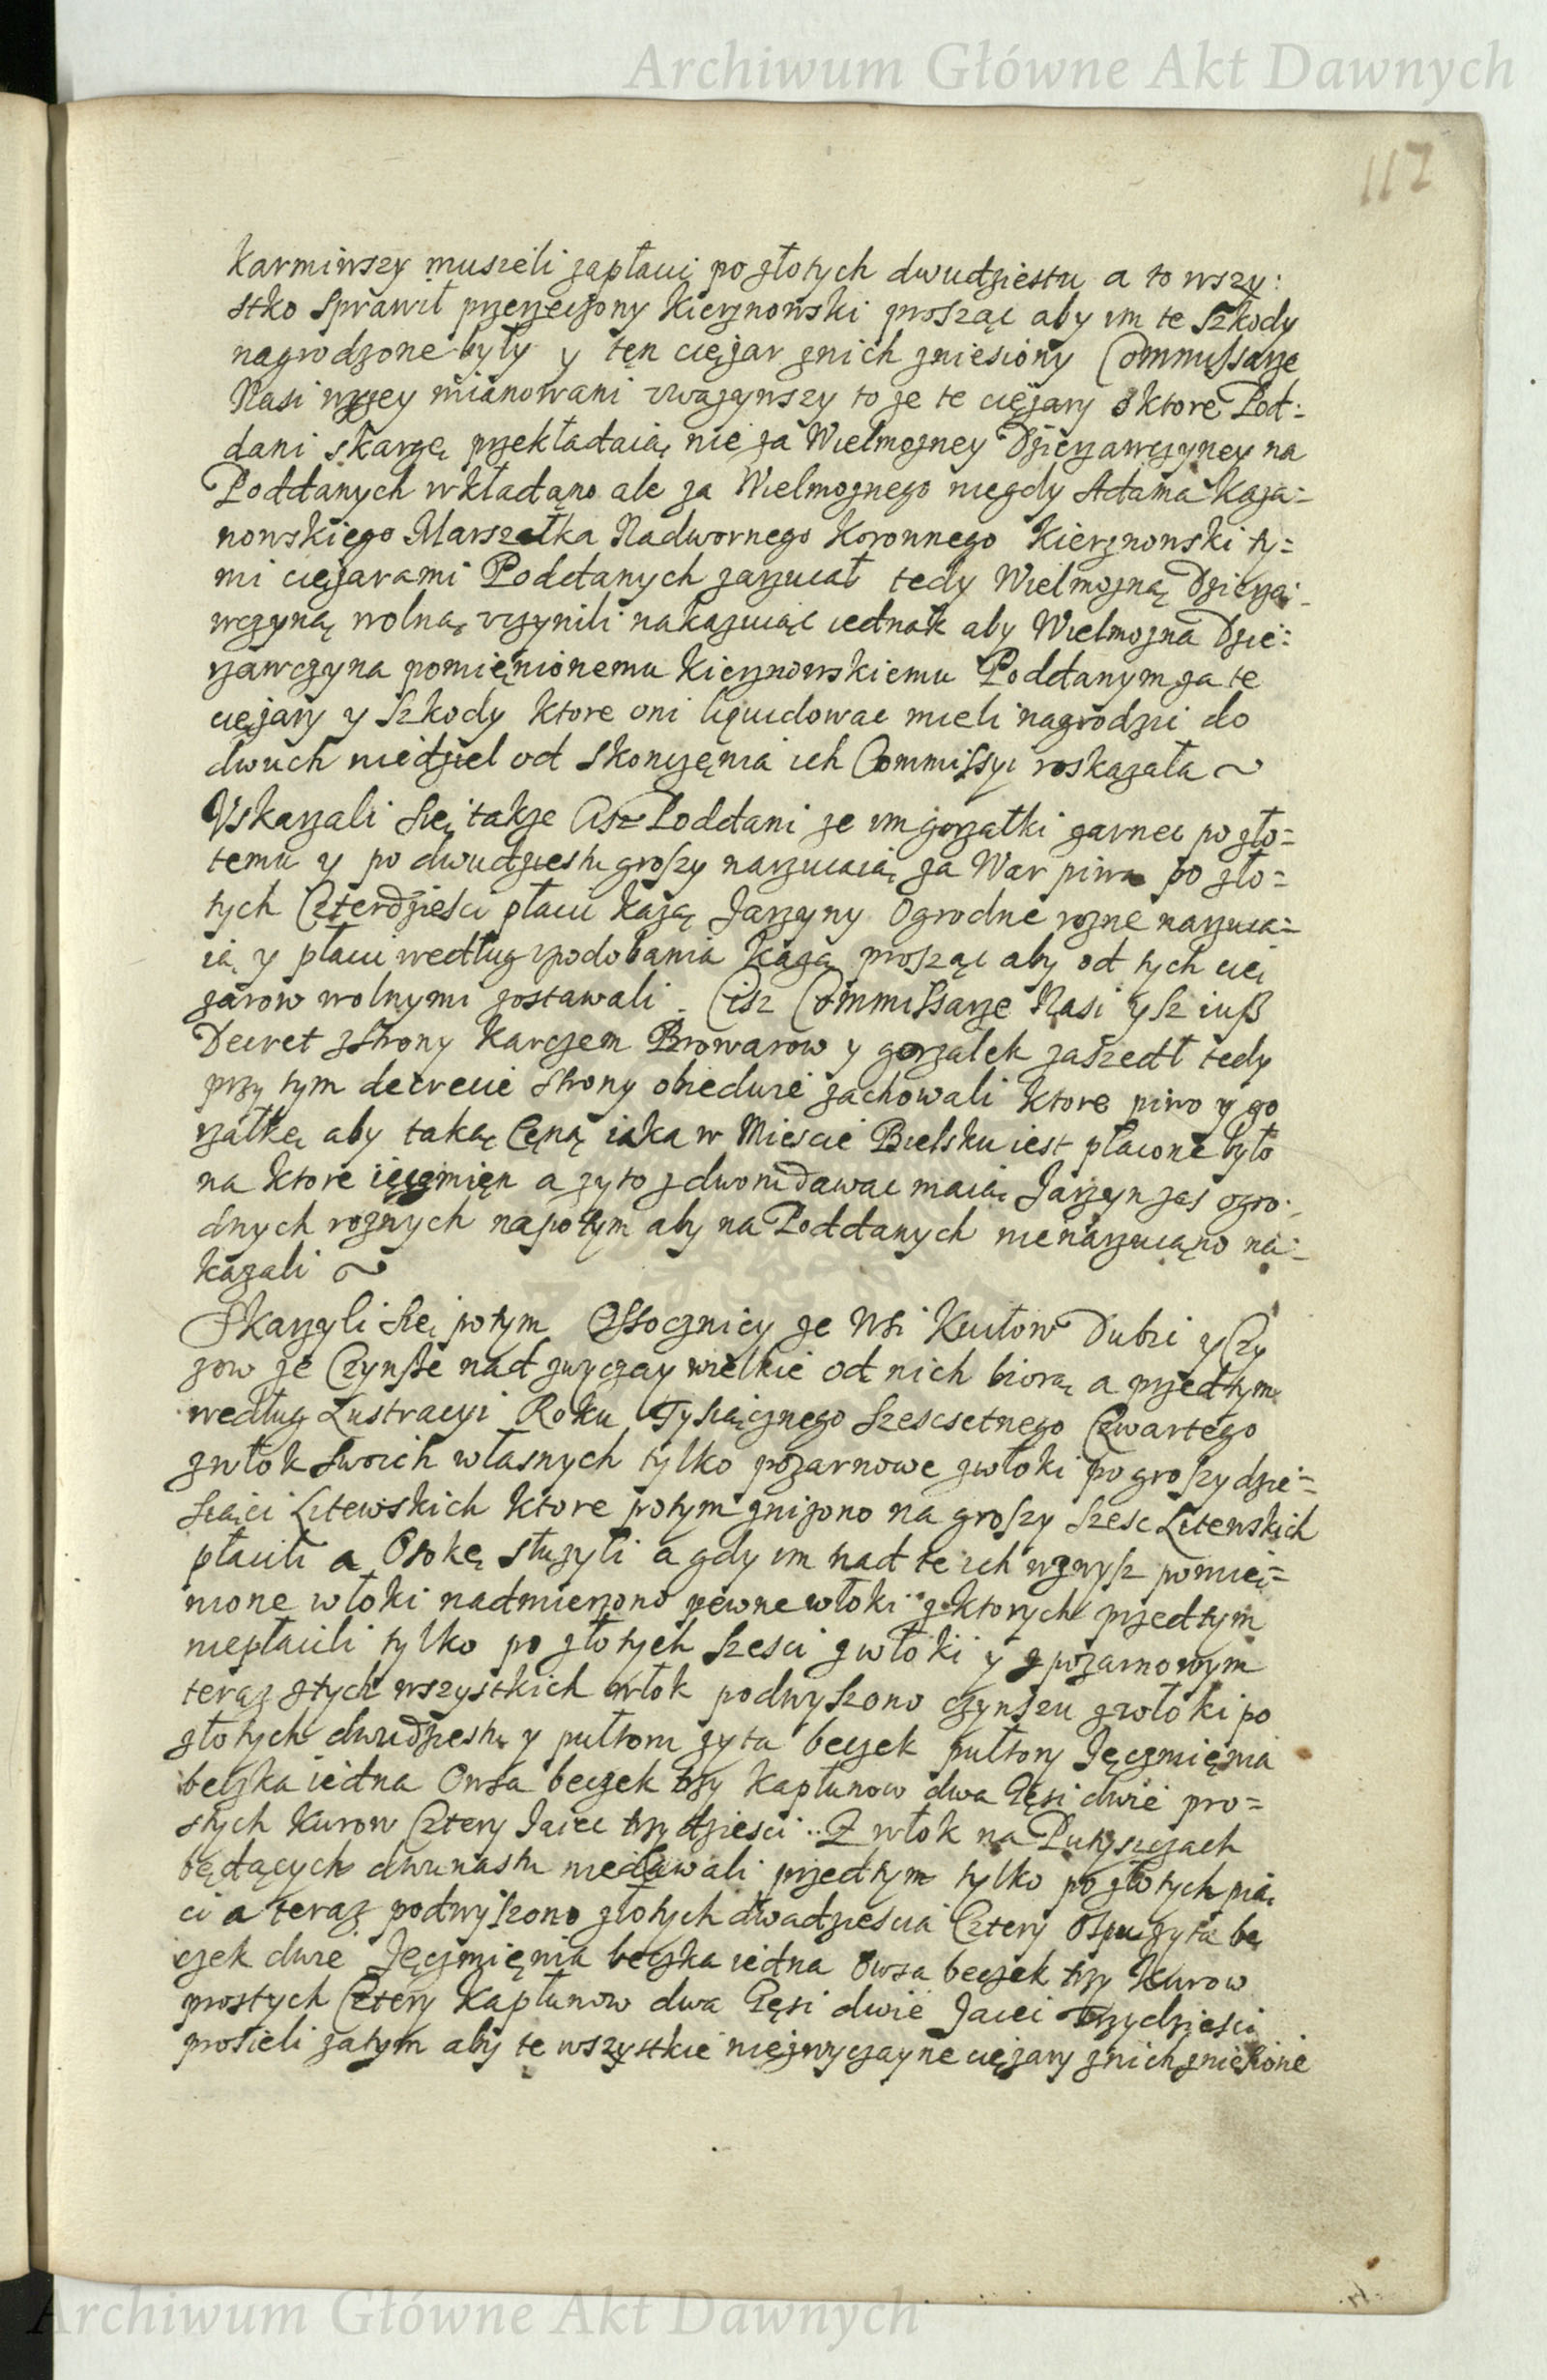 Archiwum Główne Akt Dawnych
117
karmiwszy muszeli zapłacić po złotych dwudziestu a to wszy:
stko sprawił przerzeczony Kierznowski prosząc aby im te szkody
nagrodzone były y tęn ciężar znich zniesiony Commissarze
Nasi wyzey mianowani uwazywszy to ze te ciężary o ktore Pod:
dani skargę przekładaią nie za Wielmozney Dzierzawczyney na
Poddanych wkładano ale za Wielmoznego niegdy Adama Kaza=
nowskiego Marszałka Nadwornego Koronnego Kierznowski ty=
mi ciężarami Poddanych zarzucał tedy Wielmozną Dzierza=
wczyną wolną uczynili nakazuiąc iednak aby Wielmozna Dzie=
rzawczyna pomięnionemu Kierznowskiemu Poddanym za te
ciężary y szkody ktore oni liquidowac mieli nagrodzić do
dwuch niedziel od skonczęnia ich Commissyi roskazała ~
Uskarzali się takze cisz Poddani ze im gorzałki garnec po zło=
temu y po dwudziestu groszy narzucaią za War piwa po zło=
tych Czterdziesci płacić kazą Jarzyny Ogrodne rozne narzuca=
ią y płacić według upodobania kazą prosząc aby od tych cię
zarow wolnymi zostawali. Cisz Commissarze Nasi ysz iusz
Decret zstrony Karczem Browarow y gorzalek zaszedł tedy
przy tym decrecie strony obiedwie zachowali ktore piwo y go
rzałkę aby taką Cęną iaka w Miescie Bielsku iest płacone było
na ktore ięczmięn a zyto zdworu dawac maią Jarzyn zas ogro=
dnych roznych napotym aby na Poddanych nienarzucano na=
kazali ~
Skarzyli się potym Ossocznicy ze Wsi Kutow Dubic y Czy
zow ze Czynsze nad zwyczay wielkie od nich biorą a przedtym
według Lustracyi Roku Tysiącznego Szescsetnego Czwartego
zwłok swoich własnych tylko pozarnowe zwłoki po groszy dzie=
sięci Litewskich ktore potym znizono na groszy szesc Litewskich
płacili a Osokę słuzyli a gdy im nad te ich wzwysz pomię=
nione włoki nadmierzono pewne włoki z ktorych przedtym
niepłacili tylko po złotych szesci zwłoki y zpozarnowym
teraz ztych wszystkich włok podwyszono czynszu zwłoki po
złotych dwudziestu y pułtoru zyta beczek pułtory Jęczmięnia
beczka iedna Owsa beczek trzy Kapłunow dwa Gęsi dwie pro=
stych Kurow Cztery Jaiec trzydziesci. Z włok na Putyszczach
będących dwunastu niedawali przedtym tylko po złotych pią
ci a teraz podwyszono złotych dwadziescia Cztery Ospu zyta be
czek dwie Jęczmięnia beczka iedna Owsa beczek trzy Kurow
prostych Cztery Kapłunow dwa Gęsi dwie Jaiec trzydziesci
prosieli zatym aby te wszystkie niezwyczayne ciężary znich zniesione
Archiwum Główne Akt Dawnych